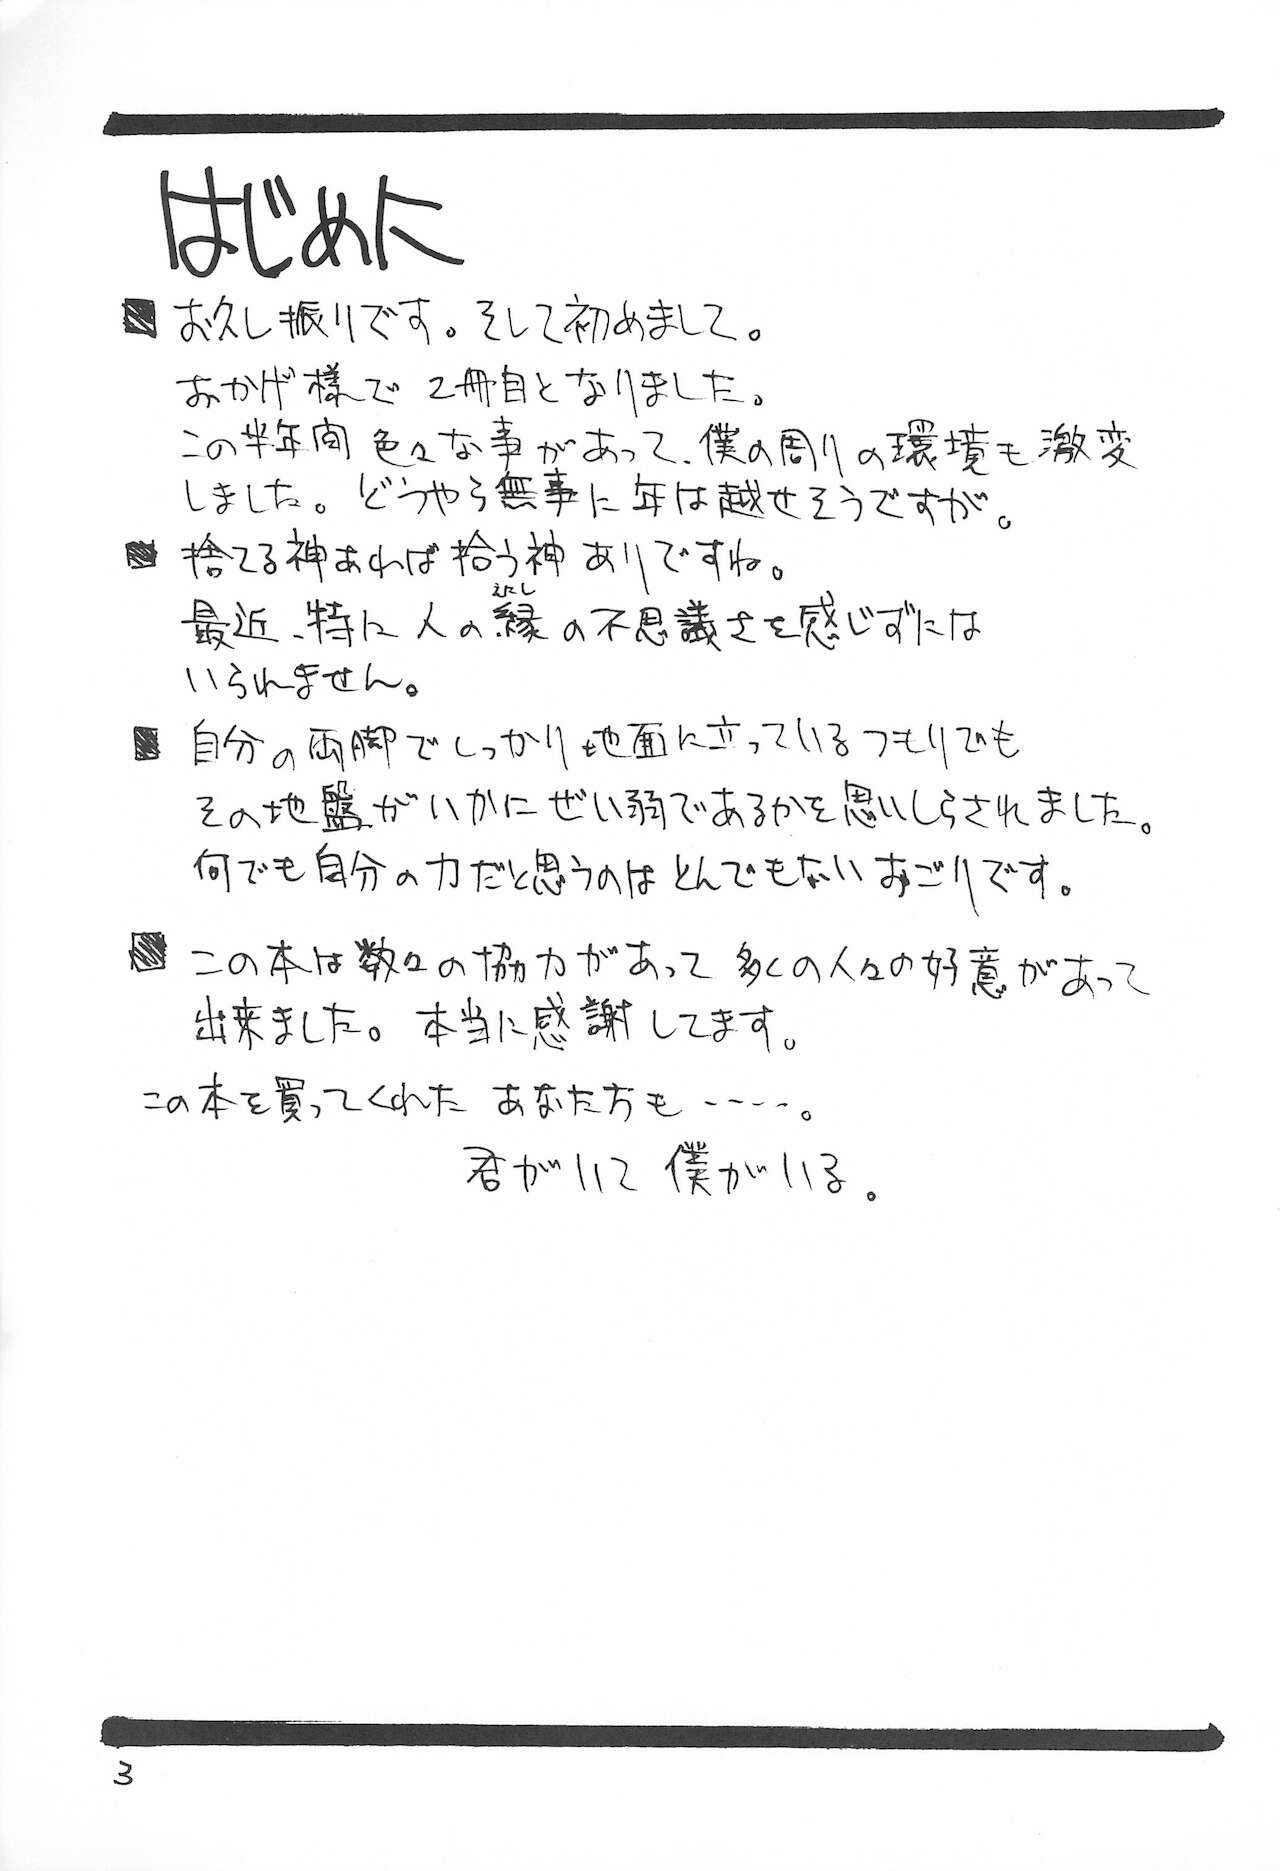 はじめに
お久し振りです。そして初めまして。
おかげ様で 2冊目となりました。
この半年間 色々な事があって、僕の周りの環境も激変
しました。どうやら無事に年は越せそうですが。
捨てる神あれば拾う神ありですね。
えにし
最近、特に人の縁の不思議さを感じずには
いられません。
自分の両脚でしっかり地面に立っているつもりでも
その地盤がいかにぜい弱であるかを思いしらされました。
何でも自分の力だと思うのはとんでもないおごりです。
この本は数々の協力があって 多くの人々の好意があって
出来ました。本当に感謝してます。
この本を買ってくれた あなた方も・・・・。
君がいて 僕がいる。
3